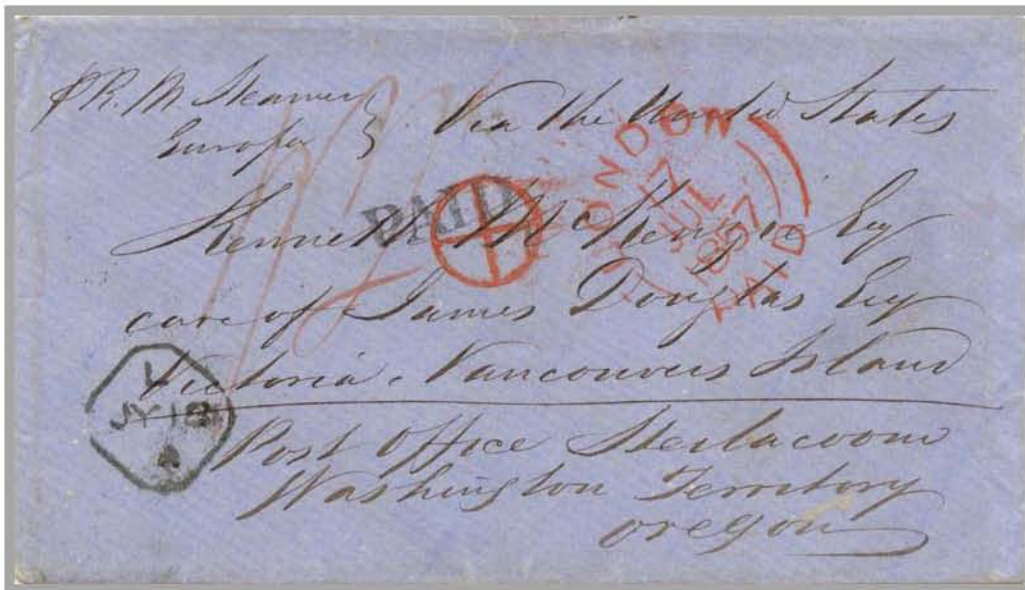 p R. M. Steamer
Europa
Via the United States
PAID
LONDON
17
JUL
1857
PAID
Kenneth McKenzie Esq
care of James Douglas Esq
Victoria. Vancouvers Island
L
JY 18
A
Post Office Steilacoom
Washington Territory
Oregon